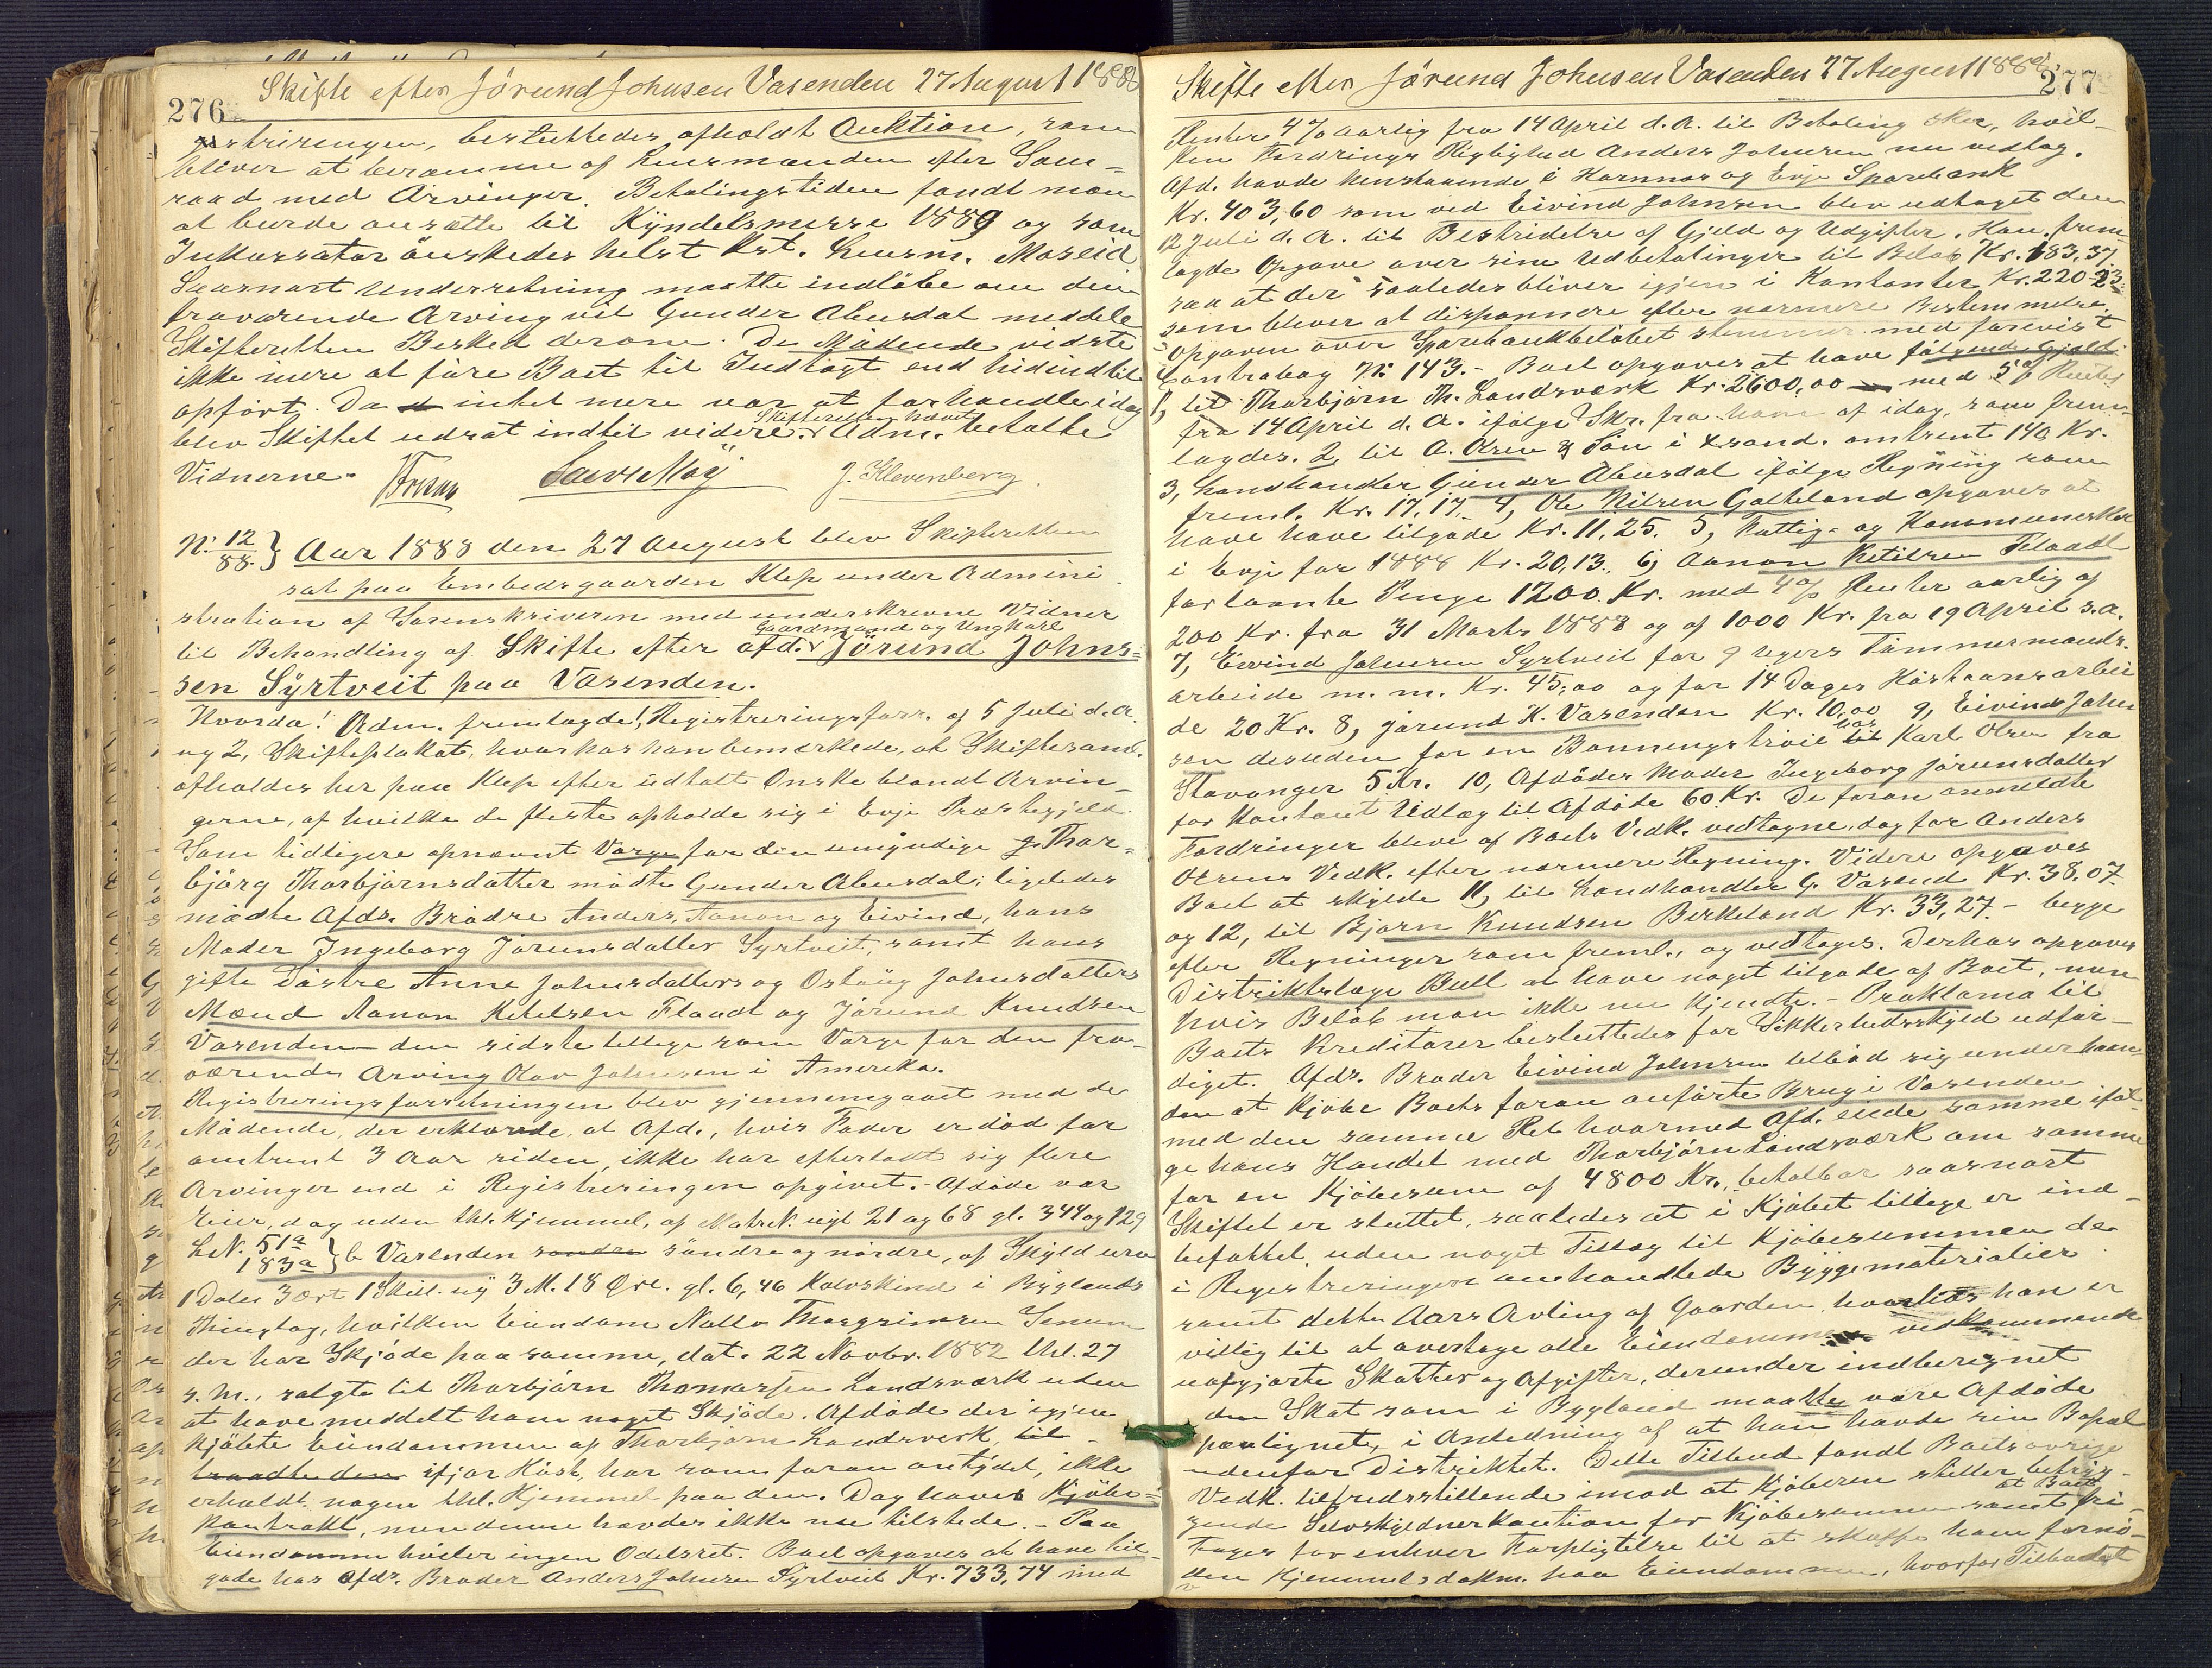 276 Skifte efter Jørund Johnsen Vasenden 27 August 1888
gistreringen, besluttedes afholdt Auktion, som
bliver at beramme af Lensmanden efter Sam-
raad med Arvinger. Betalingstiden fandt man
at burde ansætte til Kyndelsmesse 1889 og som
Inkassator ønskedes helst Kst. Lensm. Moseid
Saasnart Underretning maatte indløbe om den
fraværende Arving vil Gunder Abusdal meddele
Skifteretten Besked derom. De Mødende vidste
ikke mere at føre Boet til Indtægt end hidindtil
opført. Da intet mere var at forhandle idag
blev Skiftet udsat indtil videre. Skifteretten hævet Adm. betalte
Vidnerne. J. Klevenberg.
N. 12/88 } Aar 1888 den 27 August blev Skifteretten
sat paa Embedsgaarden Klep under Admini-
stration af Sorenskriveren med underskrevne Vidner
til Behandling af Skifte efter afd. Gaardmand og Ungkarl Jørund Johns=
sen Syrtveit paa Vasenden.
Hvorda! Adm. fremlagde 1, Registreringsforr. af 5 Juli d. A.
og 2, Skifteplakat, hvorhos han bemærkede, at Skiftesaml.
afholdes her paa Klep efter udtalt Ønske blandt Arvin-
gerne, af hvilke de fleste opholde sig i Evje Præstegjeld.
Som tidligere opnævnt Værge for den umyndige Thor=
bjørg Thorbjørnsdatter mødte Gunder Abusdal; ligeledes
mødte Afds. Brødre Anders, Aanon og Eivind, hans
Moder Ingeborg Jørunsdatter Syrtveit, samt hans
gifte Søstre Anne Johnsdatters og Osløug Johnsdatters
Mænd Aanon Ketelsen Flaadt og Jørund Knudsen
Vasenden – den sidste tillige som Værge for den fra-
værende Arving Olav Johnsen i Amerika.
Registreringsforretningen blev gjennemgaaet med de
Mødende, der erklærede, at Afd., hvis Fader er død for
omtrent 3 Aar siden, ikke har efterladt sig flere
Arvinger end i Registreringen opgivet. – Afdøde var
Eier, dog uden thl. Hjemmel, af Matr. N. nyt 21 og 68 gl. 344 og 129
L. N. 51a 183a } b Vasenden søndre og nordre, af Skyld
1 Daler 3 ort 1 Skill. ny 3 M. 18 Øre. gl. 6,46 Kalvskind i Byglands
Thinglag, hvilken Eiendom Nallo Thorgrimsen Senum
der har Skjøde paa samme, dat. 22 Novbr. 1882 thl. 27
s. M., solgte til Thorbjørn Thomassen Landsværk uden
at have meddelt ham noget Skjøde. Afdøde der igjen
kjøbte Eiendommen af Thorbjørn Landsverk til
traadte den ifjor Høst, har som foran antydet, ikke
erholdt nogen thl. Hjemmel paa den. Dog haves Kjøbe=
kontrakt, men denne havdes ikke nu tilstede. – Paa
Eiendommen hviler ingen Odelsret. Boet opgaves at have til-
gode hos Afds. Broder Anders Johnsen Syrtveit Kr. 733,74 med
Skifte efter Jørund Johnsen Vasenden 27 August 1888 277
Renter 4 % aarlig fra 14 April d. A. til Betaling sker, hvil-
ken Fordrings Rigtighed Anders Johnsen nu vedtog.
Afd. havde henstaaende i Hornnæs og Evje Sparebank
Kr. 403,60 som ved Eivind Johnsen blev udtaget den
12 Juli d. A. til Bestridelse af Gjæld og Udgifter. Han frem-
lagde Opgave over sine Udbetalinger til Beløb Kr. 183,37.
saa at der saaledes bliver igjen i Kontanter Kr. 220 23
som bliver at disponere efter nærmere Bestemmelse.
Opgaven over Sparebankbeløbet stemmer med forevist
Contrabog N. 143. – Boet opgaves at have følgende Gjæld
1, til Thorbjørn Th. Landsværk Kr. 2600,00 med 5 % Renter
fra 14 April d. A. ifølge Skr. fra ham af idag, som frem-
lagdes. 2, til A. Olsen & Søn i X.sand. omtrent 140 Kr.
3, Landhandler Gunder Abusdal ifølge Regning som
freml. Kr. 17,17. 4, Ole Nilsen Galteland opgaves at
have have tilgode Kr. 11,25. 5, Fattig- og Kommuneskat
i Evje for 1888 Kr. 20,13. 6, Aanon Ketilsen Flaadt
for laante Penge 1200 Kr. med 4 % Renter aarlig af
200 Kr. fra 31 Marts 1888 og af 1000 Kr. fra 19 April s. A.
7, Eivind Johnsen Syrtveit for 9 Ugers Tømmermands-
arbeide m. m. Kr. 45,00 og for 14 Dages Høstaansarbei
de 20 Kr. 8, Jørund K. Vasenden Kr. 10,00 9, Eivind John
sen desuden for en Bonningstrøie hos Karl Olsen fra
Stavanger 5 Kr. 10, Afdødes Moder Ingeborg Jørunsdatter
for kontant Udlæg til Afdøde 60 Kr. De foran anmeldte
Fordringer bleve af Boets Vedk. vedtagne, dog for Anders
Olsens Vedk. efter nærmere Regning. Videre opgaves
Boet at skylde 11, til Landhandler G. Vasend Kr. 38.07
og 12, til Bjørn Knudsen Birkeland Kr. 33,27 – begge
efter Regninger som freml., og vedtoges. Derhos opgaves
Distriktslæge Bull at have noget tilgode af Boet, men
hvis Beløb man ikke nu kjendte. – Proklama til
Boets Kreditorer besluttedes for Sikkerhedsskyld udfær-
diget. Afds. Broder Eivind Johnsen tilbød sig under haan-
den at kjøbe Boets foran anførte Brug i Vasenden
med den samme Ret hvormed Afd. eiede samme iføl-
ge hans Handel med Thorbjørn Landsværk om samme
for en Kjøbesum af 4800 Kr., betalbar saasnart
Skiftet er sluttet, saaledes at i Kjøbet tillige er ind-
befattet, uden noget Tillæg til Kjøbesummen de
i Registreringen omhandlede Byggematerialier
samt dette Aars Avling af Gaarden, hvorhos han er
villig til at overtage alle Eiendommen vedkommende
uafgjorte Skatter og Afgifter, derunder indberegnet
den Skat som i Bygland maatte være Afdøde
paalignet, i Anledning af at han havde sin Bopæl
udenfor Distriktet. Dette Tilbud fandt Boets øvrige
Vedk. tilfredsstillende imod at Kjøberen stiller betryg-
gende Selvskyldnerkaution for Kjøbesummen samt at Boet fri-
tages for enhver Forpligtelse til at skaffe ham fornø-
den Hjemmelsdokm. paa Eiendommen, hvorfor Tilbudet